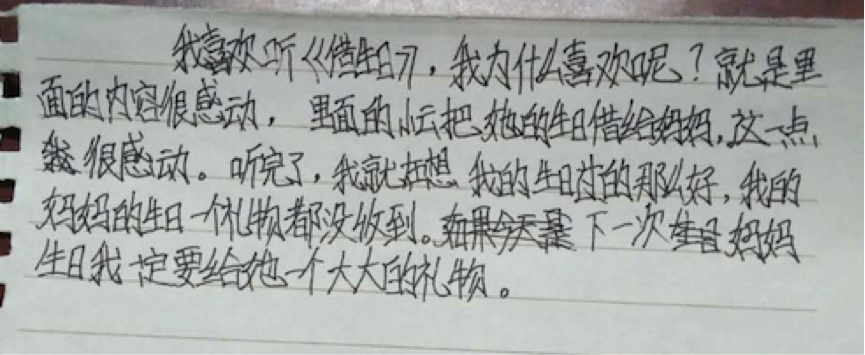 我喜欢听《借生日》，我为什么喜欢呢？就是里
面的内容很感动，里面的小云把她的生日借给妈妈，这一点
我很感动。听完了，我就在想我的生日过的那么好，我的
妈妈的生日一个礼物都没收到。下一次妈妈
生日我一定要给她一个大大的礼物。